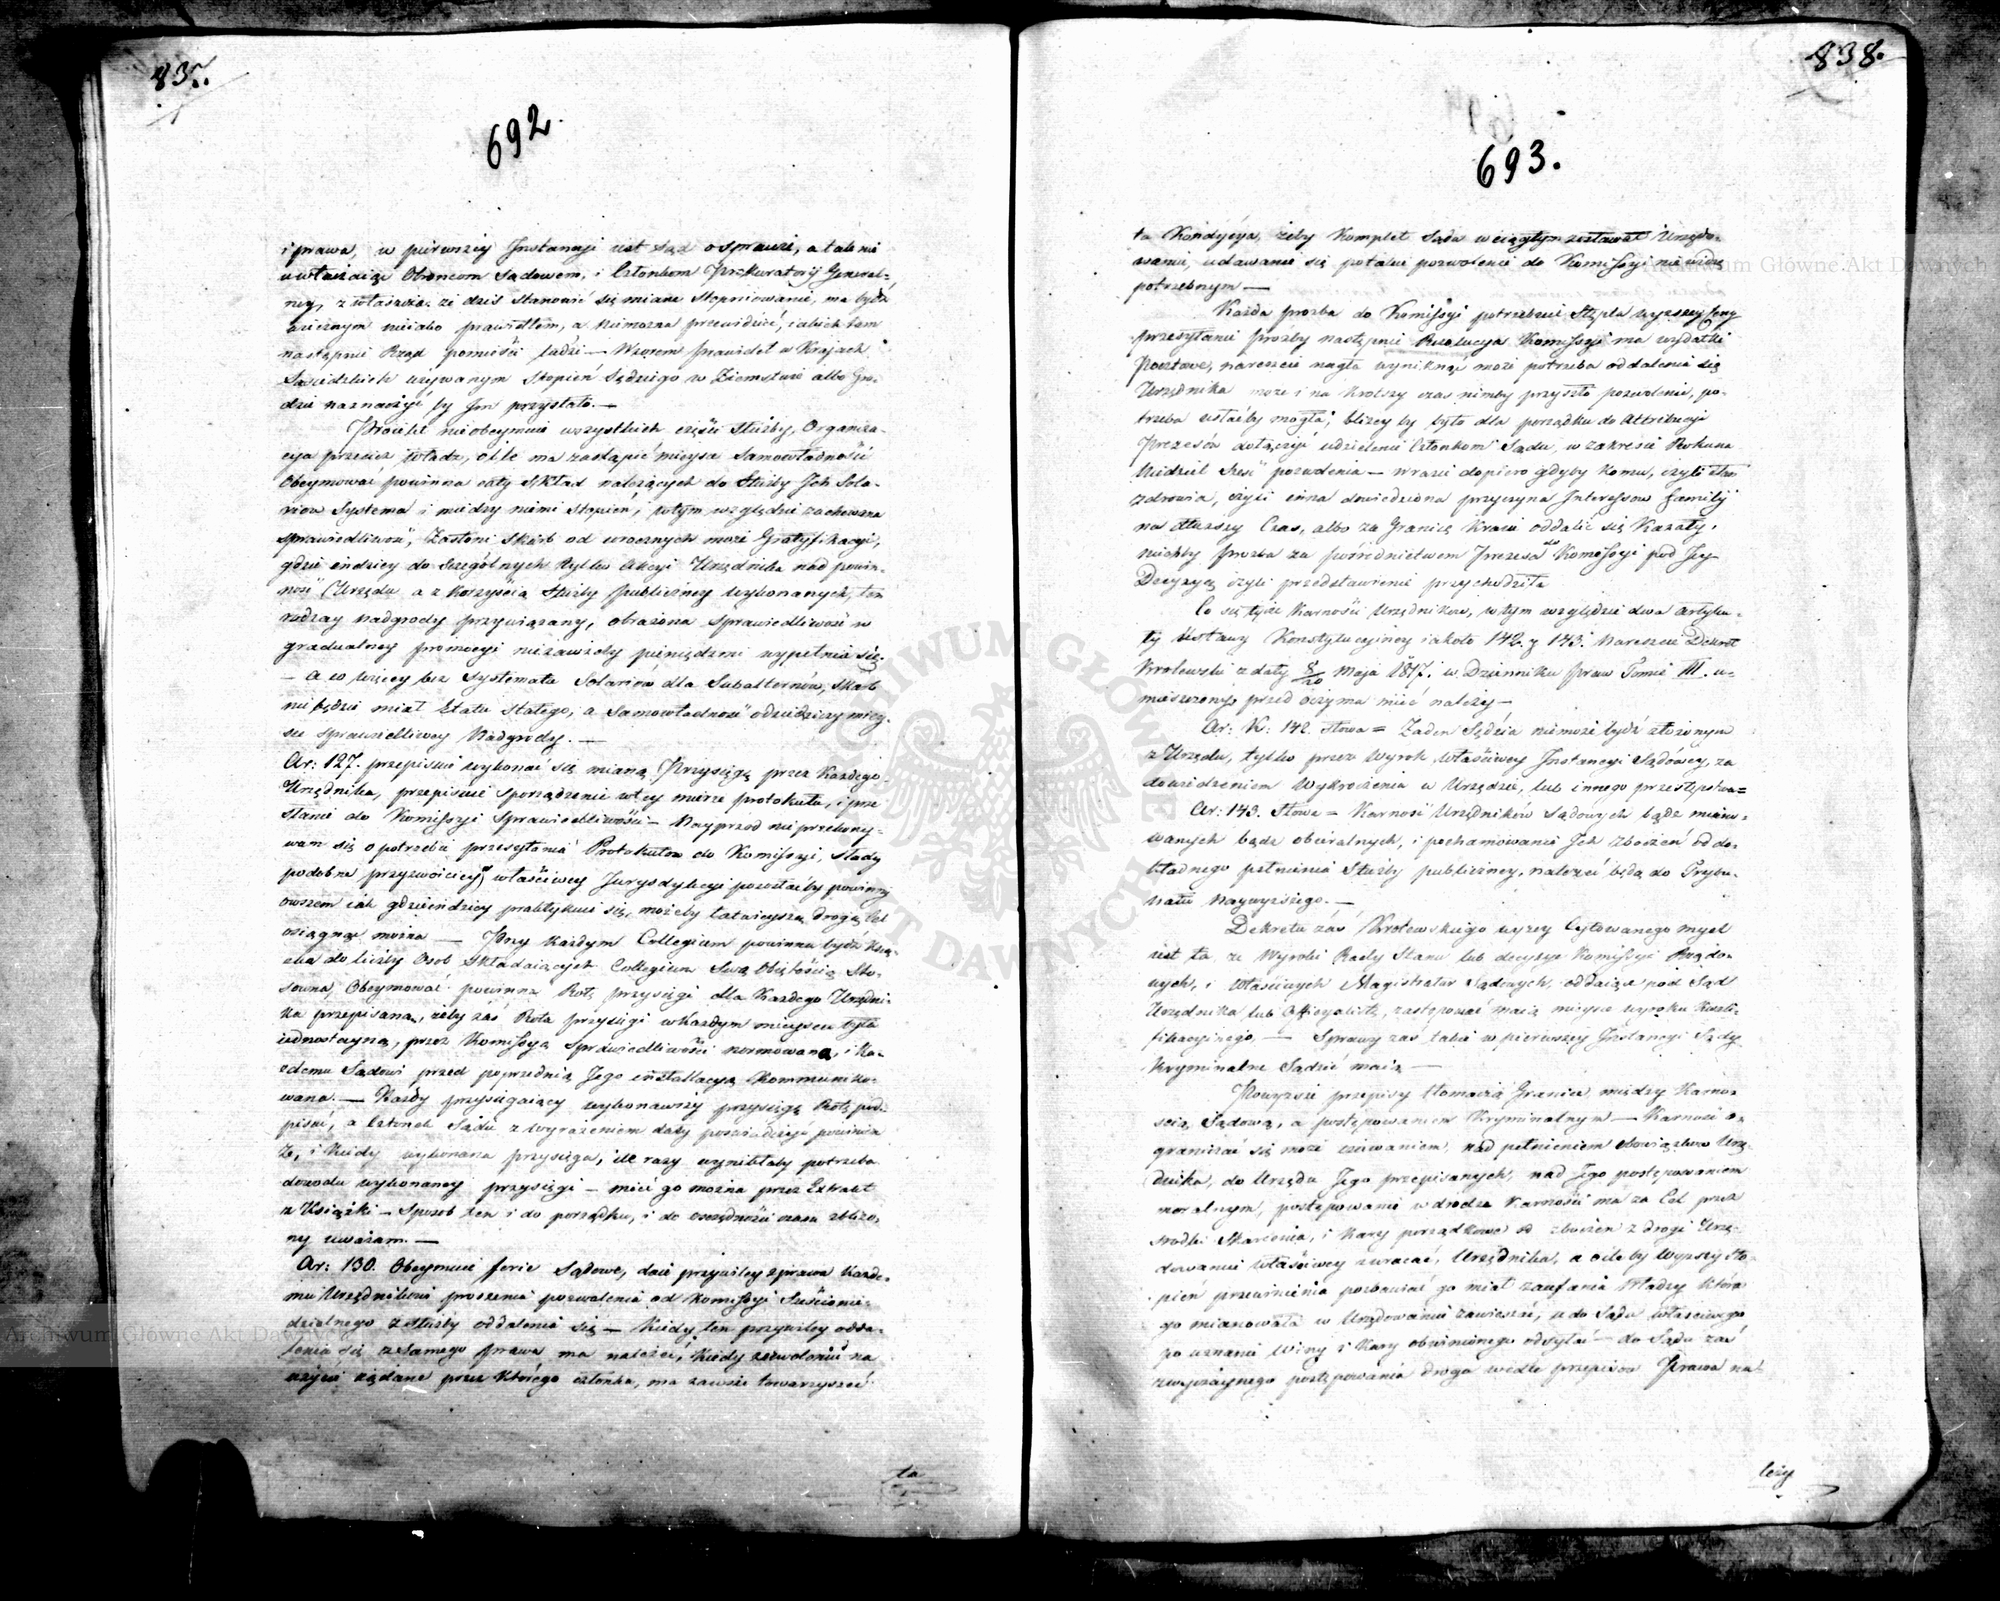 837.
692.
i prawa, w pierwszey Instancyi iest Sąd o sprawie, a tak nie
uwłaczaiąc Obrońcom Sądowem, i Członkom Prokuratoryi General-
ney, z właszcza że dziś stanowić się miane Stopniowanie, ma bydź
wiecznym nieiako prawidłem, a niemożna przewidzieć, iakich tam
następnie Rząd pomieści ludzi — Wzorem prawideł w Kraiach
Sąsiedzkich używanym stopień Sędziego w Ziemstwie albo Gro-
dzie naznaczyć by Im przystało. —
Proiekt nie obeymuie wszystkich części służby, Organiza-
cya przecież Władz, o ile ma zastąpić mieysce Samowładności
Obeymować powinna cały skład należących do Służby Ich Sola-
riów Systema i między niemi stopień, w tym względzie zachowana
sprawiedliwość, zasłoni Skarb od wrocznych może Gratyfikacyi,
gdzie indziey do Szczególnych tylko Akcyi Urzędnika nad powin-
ność Urzędu a z korzyścią Służby publiczney wykonanych, ten
rodzay nadgrody przywiązany, obrażona sprawiedliwość w
gradualney promocyi niezawżdy pieniędzmi wypełnia się.
— a co więcey bez Systematu Solariów dla Subalternów, Skarb
nie będzie miał Etatu stałego, a Samowładność odziedziczy miey-
sce sprawiedliwey Nadgrody. —
Ar: 127. przepisuie wykonać się mianą Przysięgę przez każdego
Urzędnika, przepisuie sporządzenie w tey mierze protokułu, i prze
słanie do Komissyi Sprawiedliwości — Nayprzod nie przekony-
wam się o potrzebie przesyłania Protokułów do Komissyi, słady
podobne przyzwoiciey właściwey Jurysdykcyi pozostaćby powinny
owszem iak gdzieindziey praktykuie się, możeby łatwieyszą drogą cel
osiągnąć można — Przy każdym Collegium powinna bydź Ksią-
żka do liczby Osob składaiących Collegium Swą Obiętością Sto-
sowna, Obeymować powinna Rotę przysięgi dla każdego Urzędni-
ka przepisaną, żeby zaś Rota przysięgi w każdym mieyscu była
iednostayną, przez Komissyą Sprawiedliwości normowana, i Ka-
żdemu Sądowi przed poprzednią Jego installacyą kommuniko-
wana. — Każdy przysięgaiący wykonawszy przysięgę Rotę pod-
pisać, a Członek Sądu z wyrażeniem daty poświadczyć powinien
że, i kiedy wykonana przysięga, ile razy wynikłaby potrzeba
dowodu wykonaney przysięgi — mieć go można przez Extrakt
z Książki — Sposób ten i do porządku, i do oszczędności czasu zbliżo-
ny uważam. —
Ar: 130. Obeymuie ferie Sądowe, daie przywiley z prawa każde-
mu Urzędnikowi proszenia pozwolenia od Komissyi Sześcionie-
dzielnego z służby oddalenia się — Kiedy ten przywiley odda-
lenia się z samego prawa ma należeć, kiedy zezwoleniu na
użycie żądane przez którego członka, ma zawsze towarzyszeć
ta
838.
693.
ta Kondycya, żeby Komplet Sądu w ciągłym zostawał Urzędo-
waniu, udawanie się po takie pozwolenie do Komissyi nie widzę
potrzebnym —
Każda prozba do Komissyi potrzebuie Stępla wyższey ceny
przesyłanie prozby następnie Rezolucya Komissyi ma wydatki
Pocztowe, nareszcie nagła wyniknąć może potrzeba oddalenia się
Urzędnika może i na krotszy czas nimby przyszło pozwolenie, po-
trzeba ustaćby mogła; bliżey by było dla porządku do Attribucyi
Prezesów dołączyć udzielenie Członkom Sądu, w zakresie Rokuna
Niedziel Sześć pozwolenia — w razie dopiero gdyby komu, czyli stan
zdrowia, czyli inna dowiedziona przyczyna Interessów familij
na dłuższy Czas, albo za Granicę kraiu oddalić się kazały,
niechby prozba za pośrednictwem Prezesa do Komissyi pod Jey
Decyzyą czyli przedstawienie przychodziła
Co się tycze karności Urzędników, w tym względzie dwa artyku-
ły Ustawy Konstytucyiney iakoto 142. y 143. Nareszcie Dekret
Krolewski z daty 8/20 Maja 1817. w Dzienniku praw Tomie III. u-
mieszczony, przed oczyma mieć należy —
Ar: K: 142. słowa = Żaden Sędzia niemoże bydź złożonym
z Urzędu, tylko przez wyrok właściwey Instancyi Sądowey, za
dowiedzeniem wykroczenia w Urzędzie, lub innego przestępstwa =
Ar: 143. Słowa = Karność Urzędników Sądowych bądź miano-
wanych bądź obieralnych, i pohamowanie Ich zboczeń od do-
kładnego pełnienia Służby publiczney, należeć będą do Trybu-
nału Naywyższego. —
Dekretu zaś Krolewskiego wyżey Cytowanego myśl
iest ta, że Wyroki Rady Stanu lub decyzye Komissyi Rządo-
wych, i właściwych Magistratur Sądowych, oddaiąc pod Sąd
Urzędnika lub Officyalistę, zastępować maią mieysce wyroku Kwali-
fikacyinego, — Sprawy zaś takie w pierwszey Instancyi Sądy
Kryminalne Sądzić maią —
Powyższe przepisy tłomaczą Granicę między Karno-
ścią Sądową, a postępowaniem Kryminalnym — Karność o-
graniczać się może czuwaniem nad pełnieniem obowiązków Urzę-
dnika, do Urzędu Jego przepisanych, nad Jego postępowaniem
moralnym, postępowanie w drodze Karności ma za Cel przez
srodki skarcenia, i kary porządkowe od zboczeń z drogi Urzę-
dowania właściwey zwracać, Urzędnika, a o ile by wyższy sto-
pień przewinienia pozbawiać go miał zaufania Władzy która
go mianowała w Urzędowaniu zawieszać, i do Sądu właściwego
po uznanie winy i kary obwinionego odsyłać — do Sądu zaś
zwyczaynego postępowania droga wedle przepisów Prawa na-
leży
Archiwum Główne Akt Dawnych
Archiwum Główne Akt Dawnych
ARCHIWUM GŁÓWNE AKT DAWNYCH